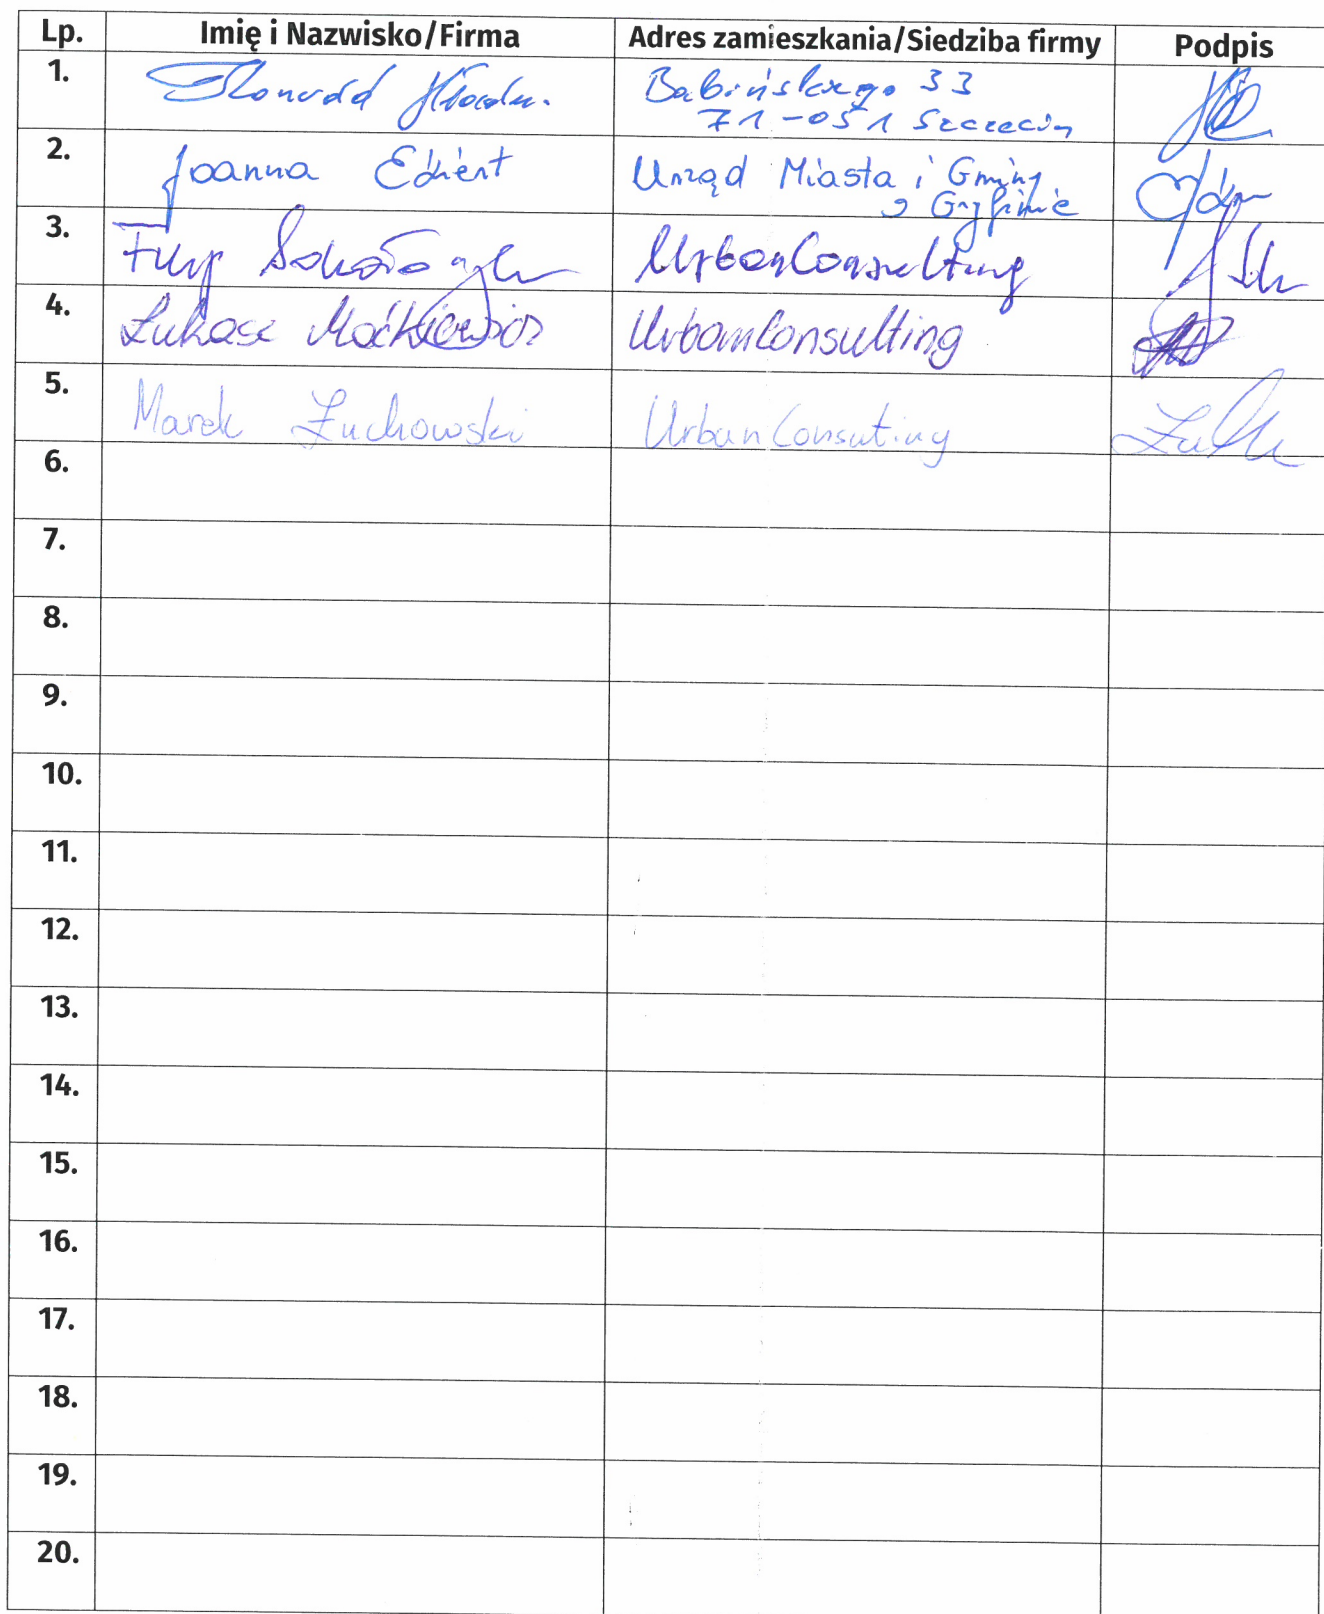 Lp. Imię i Nazwisko/Firma Adres zamieszkania/Siedziba firmy Podpis
1. Babińskiego 33
71-051 Szczecin
2. Joanna Urząd Miasta i Gminy
w Gryfinie
3. Filip UrbanConsulting
4. Łukasz Maćkiewicz UrbanConsulting
5. Marek Żuchowski UrbanConsuting
6.
7.
8.
9.
10.
11.
12.
13.
14.
15.
16.
17.
18.
19.
20.